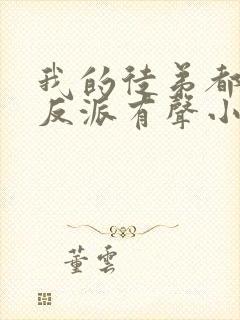 我的徒弟都
反派有聲小
董雲